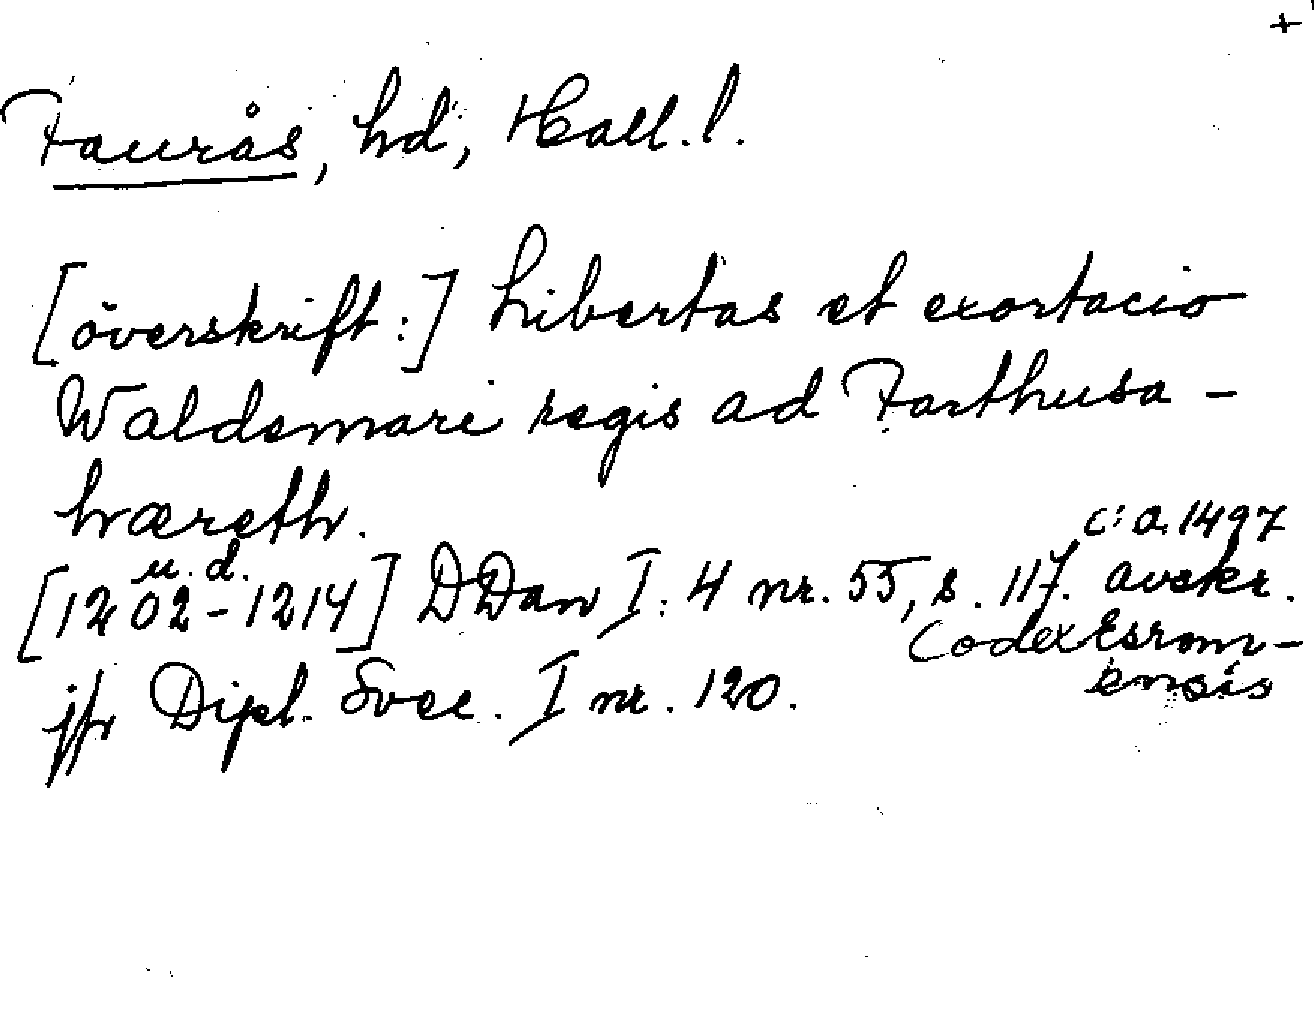 +
Faurås, hd, Hall. l.
[överskrift:] Libertas et exortacio
Waldemari regis ad Farthusa-
hræreth.
c:a. 1497
u. d.
[1202-1214] DDan I: 4 nr. 55, s. 117. avskr.
Codex Esrom-
ensis
jfr Dipl. Svec. I nr. 120.